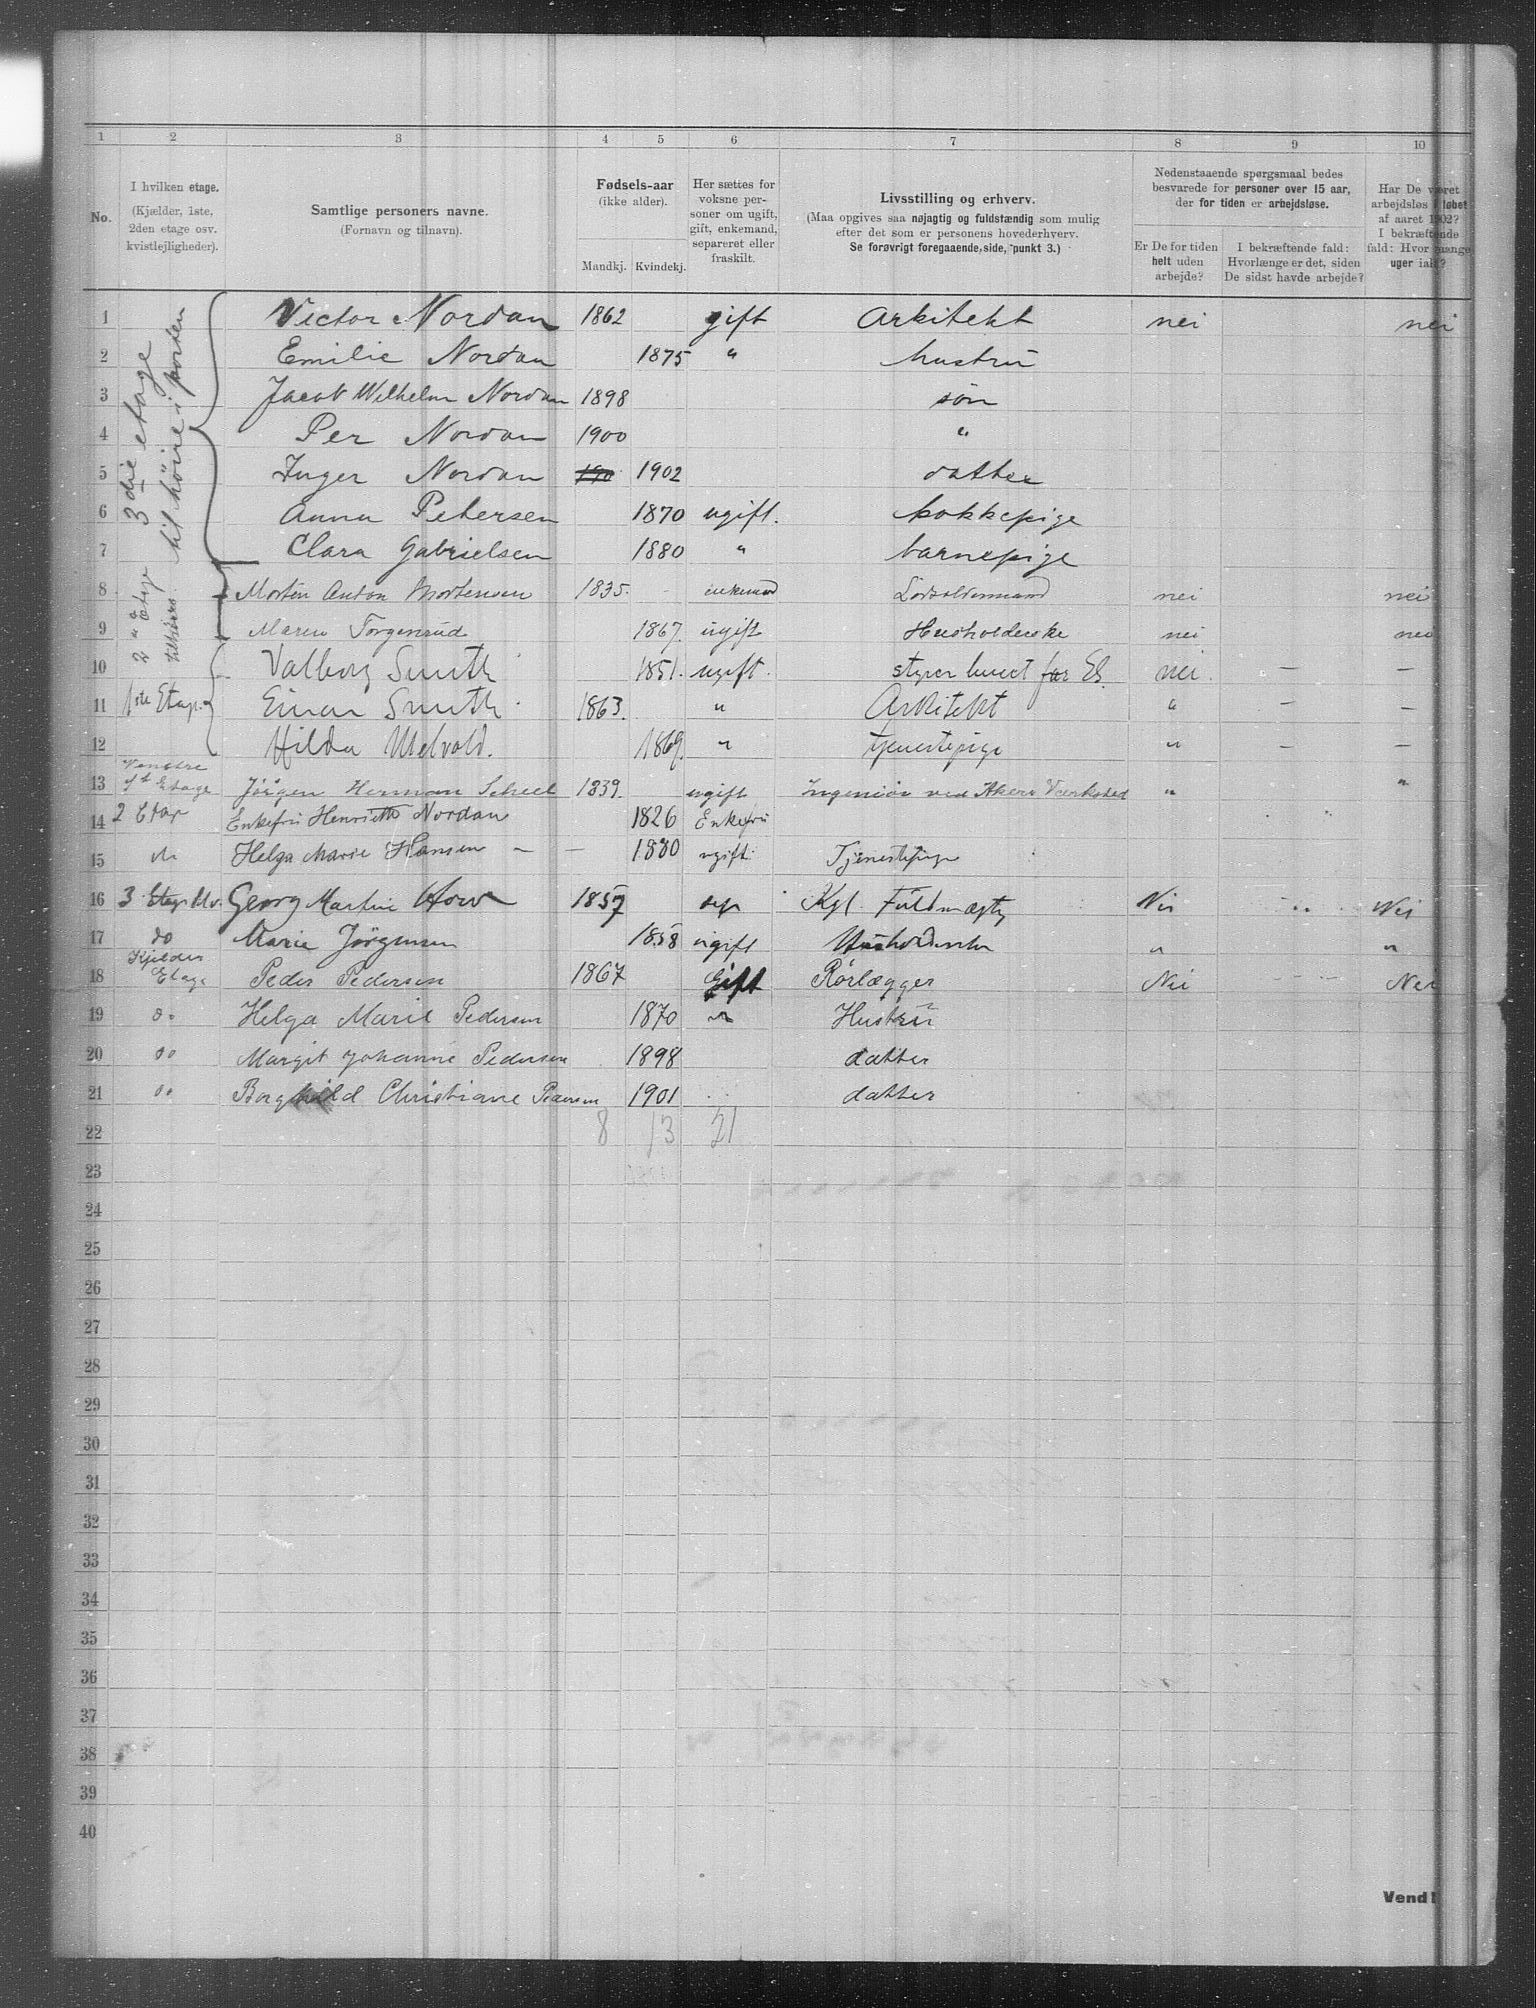 1 2 3 4 5 6 7 8 9 10
No.
I hvilken etage.
(Kjælder, 1ste,
2den etage osv.
kvistlejligheder).
Samtlige personers navne.
(Fornavn og tilnavn).
Fødsels-aar
(ikke alder).
Mandkj. Kvindekj.
Her sættes for
voksne per-
soner om ugift,
gift, enkemand,
separeret eller
fraskilt.
Livsstilling og erhverv.
(Maa opgives saa nøjagtig og fuldstændig som mulig
efter det som er personens hovederhverv.
Se forøvrigt foregaaende side, punkt 3.)
Nedenstaaende spørgsmaal bedes
besvarede for personer over 15 aar,
der for tiden er arbejdsløse.
Er De for tiden
helt uden
arbejde?
I bekræftende fald:
Hvorlænge er det, siden
De sidst havde arbejde?
Har De været
arbejdsløs i løbet
af aaret 1902?
I bekræftende
fald: Hvor mange
uger ialt?
3die etage
til høire i porten
1 Victor Nordan 1862 gift Arkitekt nei nei
2 Emilie Nordan 1875 " hustru
3 Jacob Wilhelm Nordan 1898 søn
4 Per Nordan 1900 "
5 Inger Nordan 190 1902 datter
6 Anna Petersen 1870 ugift. kokkepige
7 Clara Gabrielsen 1880 " barnepige
2n Etage
8 Morten Anton Mortensen 1835. enkemand Lodsoldermand nei nei
9 Maren Torgenrud 1867. ugift Husholderske nei nei
10 Valborg Smith 1851. ugift. styrer huset for ES. nei. — —
11 1ste Etage. Einar Smith 1863. " Arkitekt " — —
12 Hilda 1869. " tjenestepige " — —
13 Venstre 1st Etage Jörgen Herman Scheel 1839. ugift Ingeniör ved Akers Værksted " "
14 2 Etage Enkefru Henriette Nordan 1826 Enkefru
15 Helga Marie Hansen — — 1880 ugift. Tjenestepige
16 3 Etage Georg Martin 1857 sep Kgl. Fuldmægtig Nei " Nei
17 do Marie Jørgensen 1858 ugift Husholderske " "
18 Kjelder Etage Peder Pedersen 1867 Gift Rørlægger Nei — Nei
19 do Helga Marie Pedersen 1870 " Hustru
20 do Margit Johanne Pedersen 1898 datter
21 do Borghild Christiane Pedersen 1901 datter
22 8 13 21
23
24
25
26
27
28
29
30
31
32
33
34
35
36
37
38
39
40
Vend!